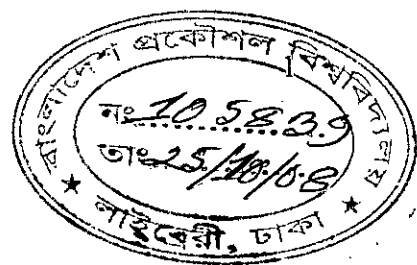 বাংলাদেশ প্রকৌশল বিশ্ববিদ্যালয়
নং 105839
তাং 25/10/08
★ লাইব্রেরী, ঢাকা ★